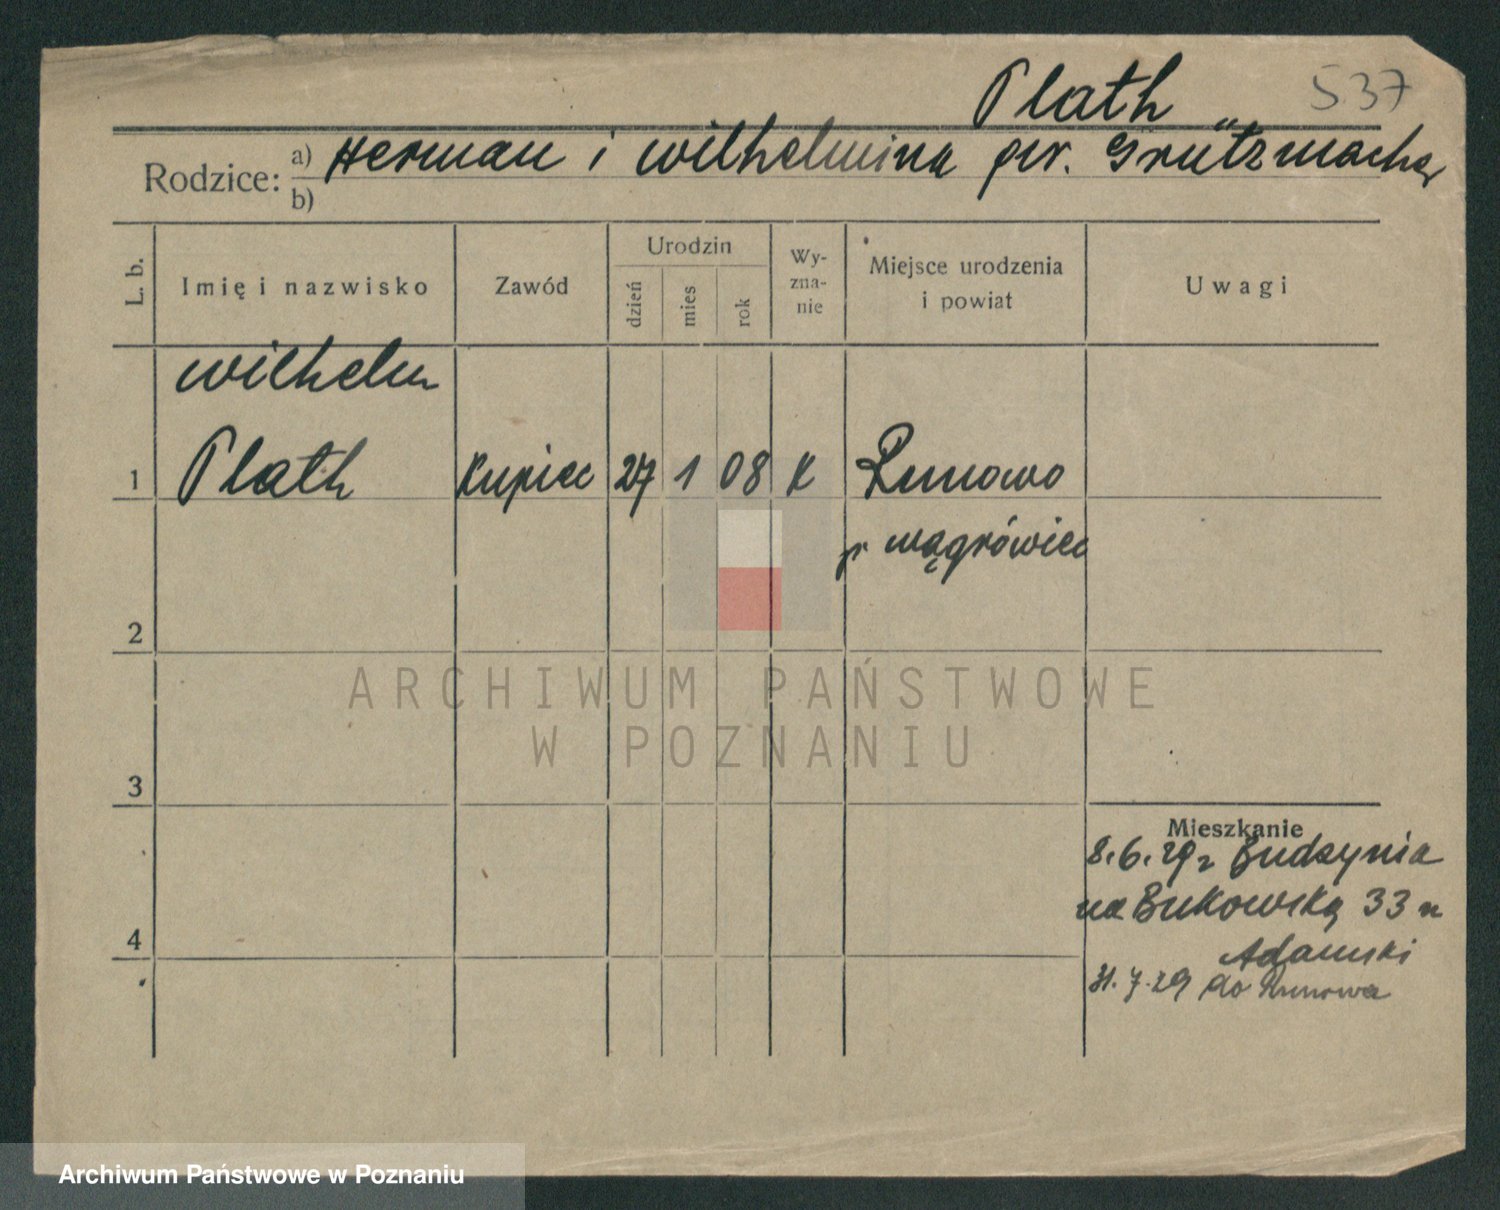 Plath 537
Rodzice: a) Herman i Wilhelmina gr. Grützmacher
b)
L. b. Imię i nazwisko Zawód Urodzin dzień mies rok Wy-zna-nie Miejsce urodzenia i powiat Uwagi
Wilhelm
1 Plath Kupiec 27 1 08 K Runowo
p Wągrówiec
2
ARCHIWUM PAŃSTWOWE
W POZNANIU
3
Mieszkanie
8.6.29 z Budzynia
na Bukowską 33 u
4 Adamski
31.7.29 do Runowa
Archiwum Państwowe w Poznaniu